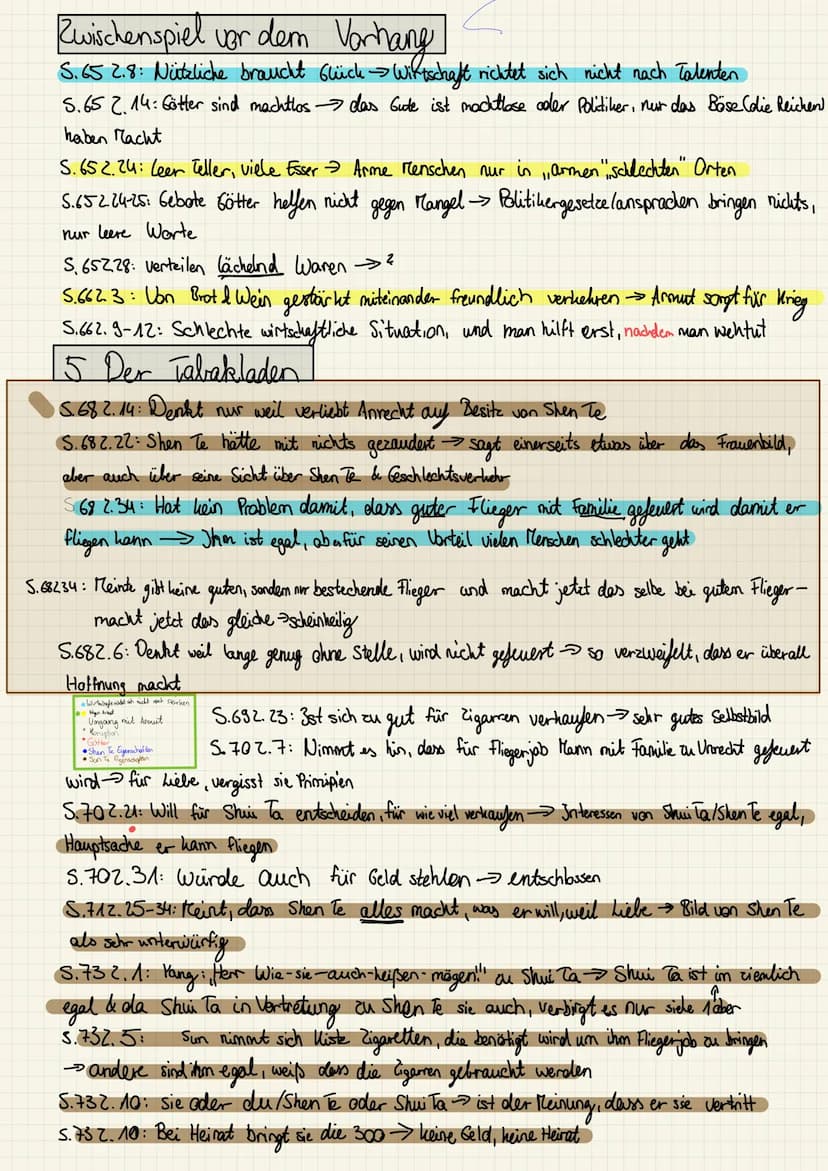 Zwischenspiel vor dem Vorhang
S.65 Z.8: Nützliche braucht Glück → Wirtschaft richtet sich nicht nach Talenten
S.65 Z.14: Götter sind machtlos → das Gute ist machtlose oder Politiker, nur das Böse (die Reichen)
haben Macht
S.65 Z.24: Leer Teller, viele Esser → Arme Menschen nur in „armen" „schlechten" Orten
S.65 Z.24-25: Gebote Götter helfen nicht gegen Mangel → Politikergesetze/ansprachen bringen nichts,
nur leere Worte
S.65 Z.28: verteilen lächelnd Waren → ?
S.66 Z.3: Von Brot & Wein gestärkt miteinander freundlich verkehren → Armut sorgt für Krieg
S.66 Z.9-12: Schlechte wirtschaftliche Situation, und man hilft erst, nachdem man wehtut
5 Der Tabakladen
S.68 Z.14: Denkt nur weil verliebt Anrecht auf Besitz von Shen Te
S.68 Z.22: Shen Te hätte mit nichts gezaudert → sagt einerseits etwas über das Frauenbild,
aber auch über seine Sicht über Shen Te & Geschlechtsverkehr
S 68 Z.34: Hat kein Problem damit, dass guter Flieger mit Familie gefeuert wird damit er
fliegen kann → Ihm ist egal, ob für seinen Vorteil vielen Menschen schlechter geht
S.68 Z.34: Meinte gibt keine guten, sondern nur bestechende Flieger und macht jetzt das selbe bei guten Flieger-
macht jetzt das gleiche → scheinheilig
S.68 Z.6: Denkt weil lange genug ohne Stelle, wird nicht gefeuert → so verzweifelt, dass er überall
Hoffnung macht
Umgang mit Armut
Korruption
Götter
Shen Te Eigenschaften
Sun Te Eigenschaften
S.69 Z.23: Ist sich zu gut für Zigarren verkaufen → sehr gutes Selbstbild
S.70 Z.7: Nimmt es hin, dass für Fliegerjob Mann mit Familie zu Unrecht gefeuert
wird → für Liebe, vergisst sie Prinzipien
S.70 Z.21: Will für Shui Ta entscheiden, für wie viel verkaufen → Interessen von Shui Ta/Shen Te egal,
Hauptsache er kann fliegen
S.70 Z.31: Würde auch für Geld stehlen → entschlossen
S.71 Z.25-34: Meint, dass Shen Te alles macht, was er will, weil Liebe → Bild von Shen Te
als sehr unterwürfig
S.73 Z.1: Yang: „Herr Wie-sie-auch-heißen-mögen!" zu Shui Ta → Shui Ta ist im ziemlich
egal & da Shui Ta in Vertretung zu Shen Te sie auch, verbirgt es nur siehe 1 über
S.73 Z.5: Sun nimmt sich Kiste Zigaretten, die benötigt wird um ihm Fliegerjob zu bringen
→ andere sind ihm egal, weiß dass die Zigarren gebraucht werden
S.73 Z.10: Sie oder du/Shen Te oder Shui Ta → ist der Meinung, dass er sie vertritt
S.73 Z.10: Bei Heirat bringt sie die 300 → keine Geld, keine Heirat